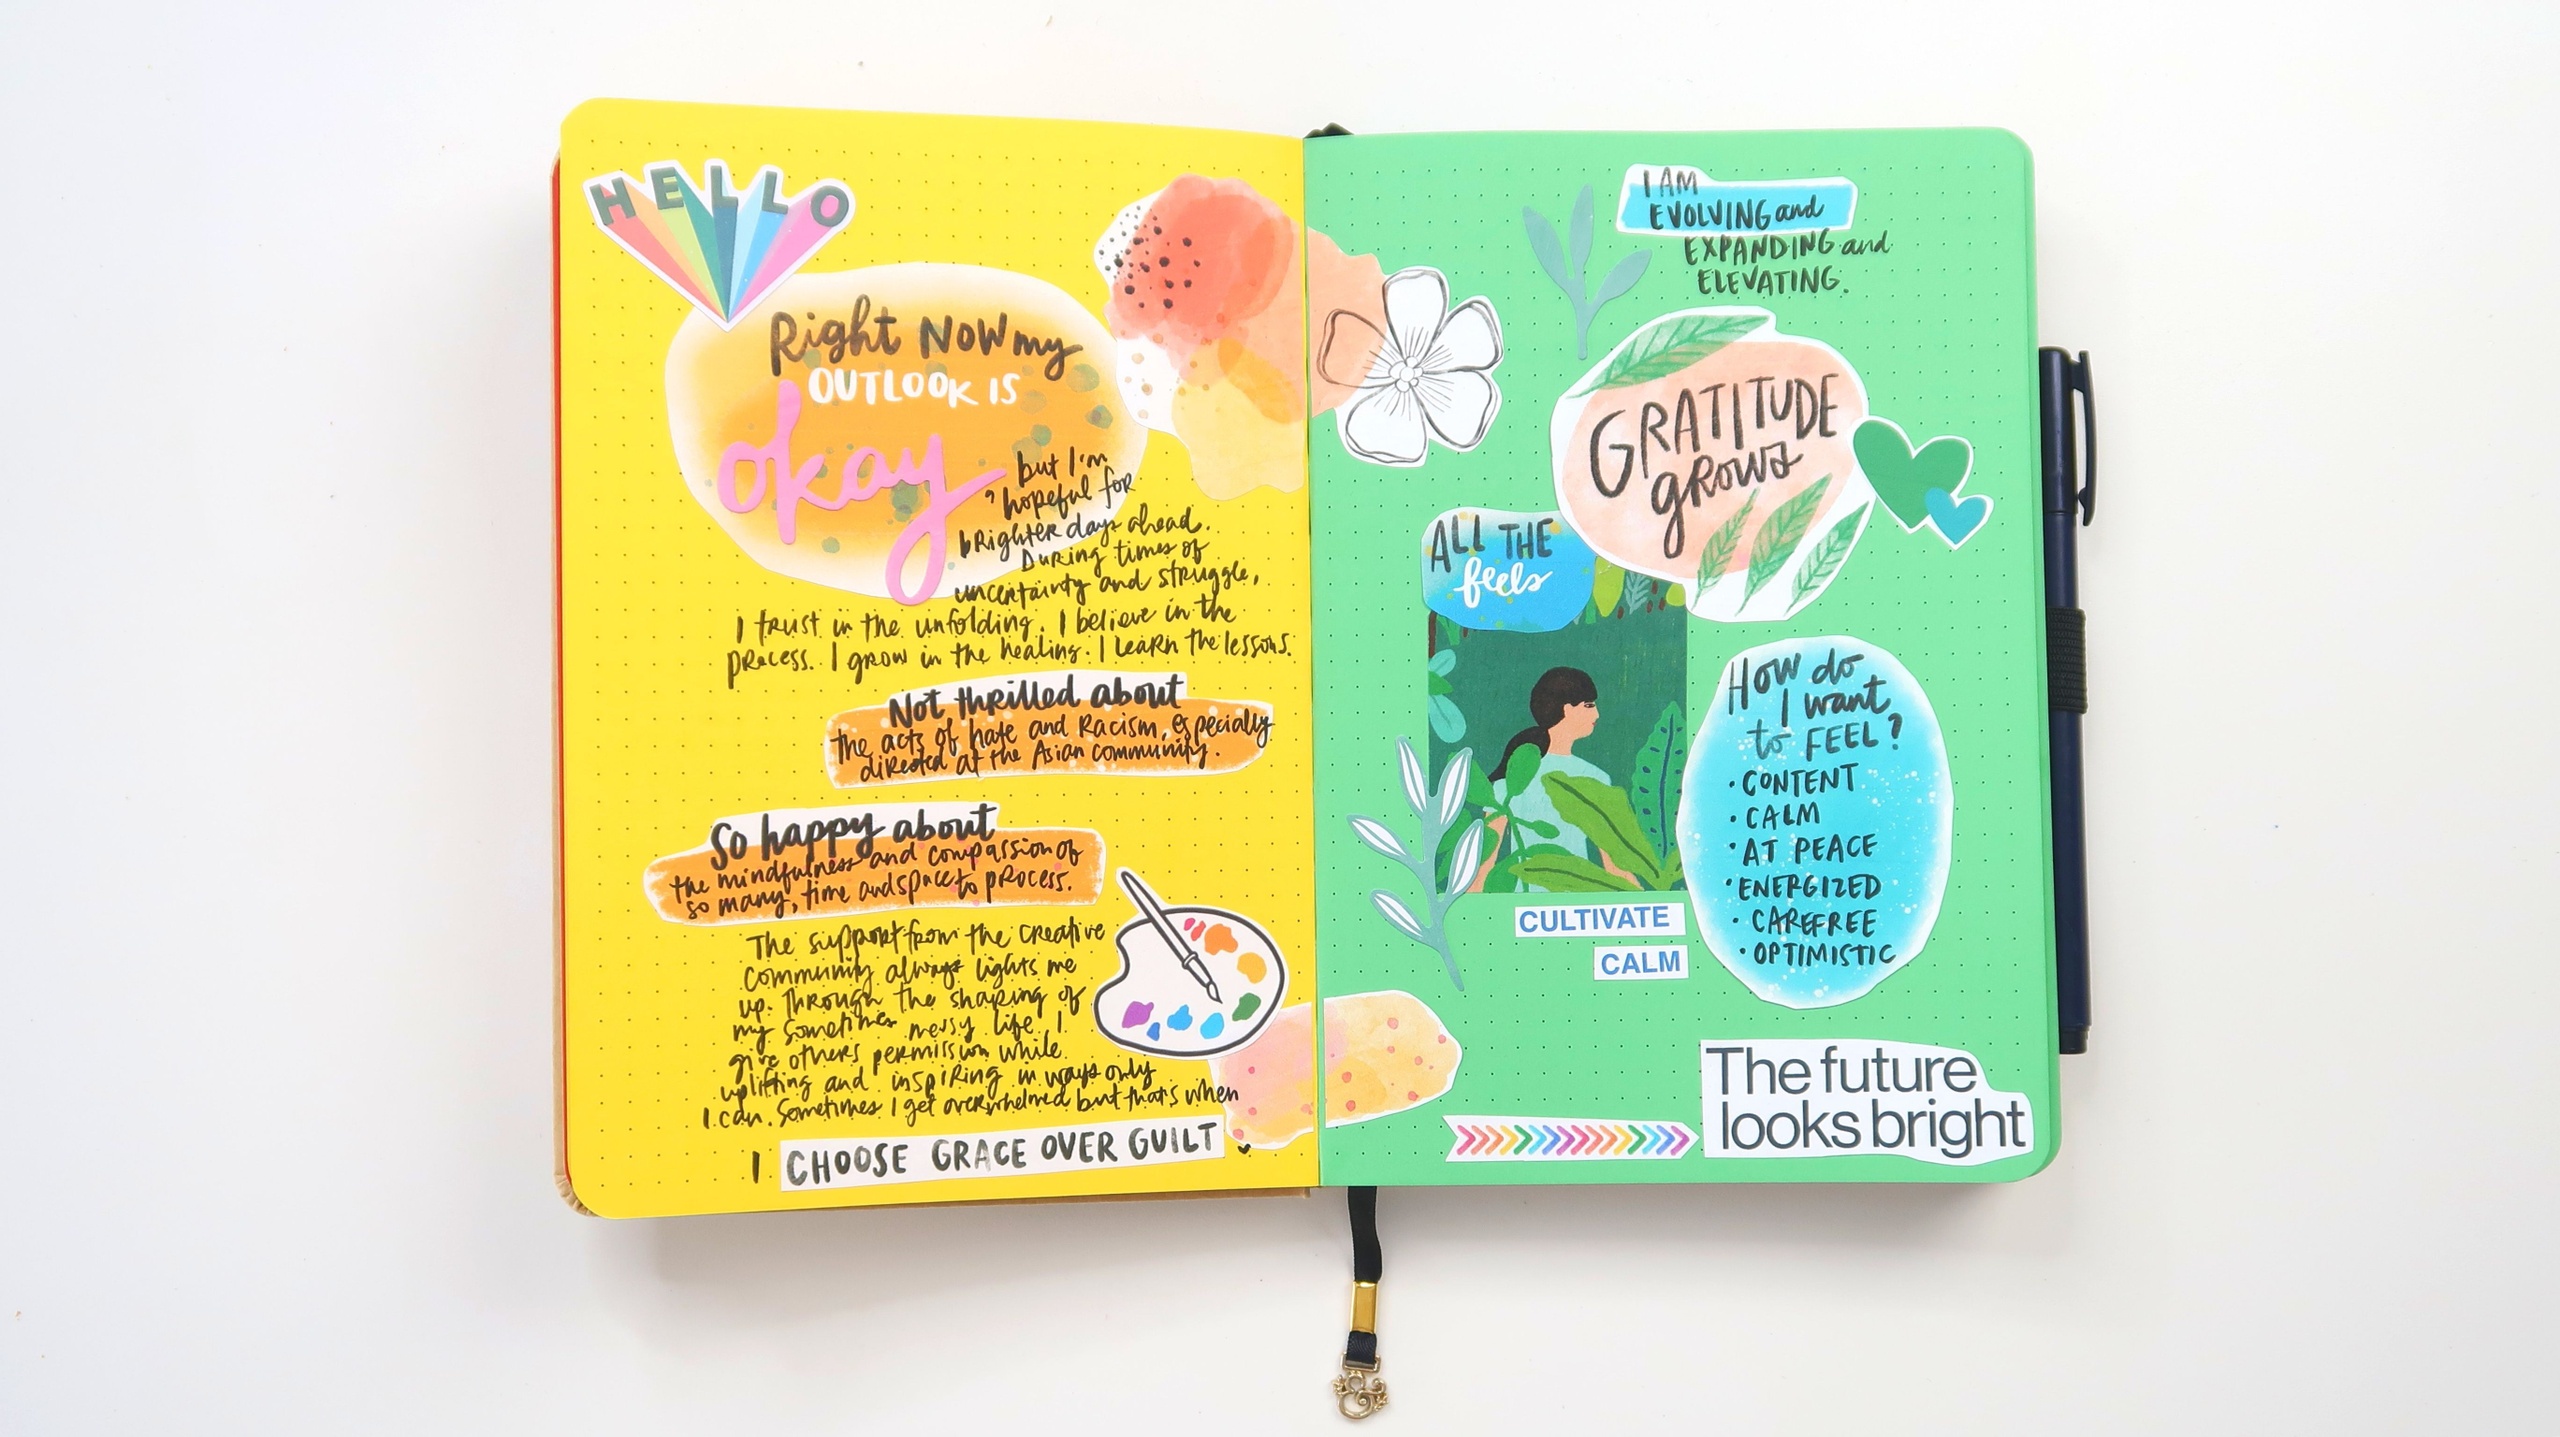 HELLO
Right NOW my
OUTLOOK IS
okay
but I'm
hopeful for
brighter days ahead.
During times of
uncertainty and struggle,
I trust in the unfolding. I believe in the
process. I grow in the healing. I learn the lessons.
Not thrilled about
the acts of hate and racism, especially
directed at the Asian community.
So happy about
the mindfulness and compassion of
so many, time and space to process.
The support from the creative
community always lights me
up. Through the sharing of
my sometimes messy life, I
give others permission while
uplifting and inspiring in ways only
I can. Sometimes I get overwhelmed but that's when
I CHOOSE GRACE OVER GUILT
I AM
EVOLVING and
EXPANDING and
ELEVATING.
GRATITUDE
grows
ALL THE
feels
How do
I want
to FEEL?
• CONTENT
• CALM
• AT PEACE
• ENERGIZED
• CAREFREE
• OPTIMISTIC
CULTIVATE
CALM
The future
looks bright